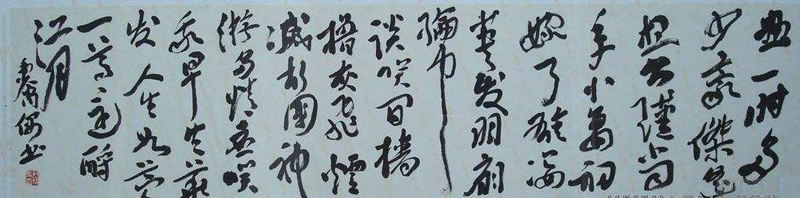 画一時多
少豪傑遥
想公瑾當
年小喬初
嫁了雄姿
英發羽扇
綸巾
談咲间檣
櫓灰飛煙
滅故國神
游多情應咲
我早生華
发人生如夢
一尊還酹
江月
书